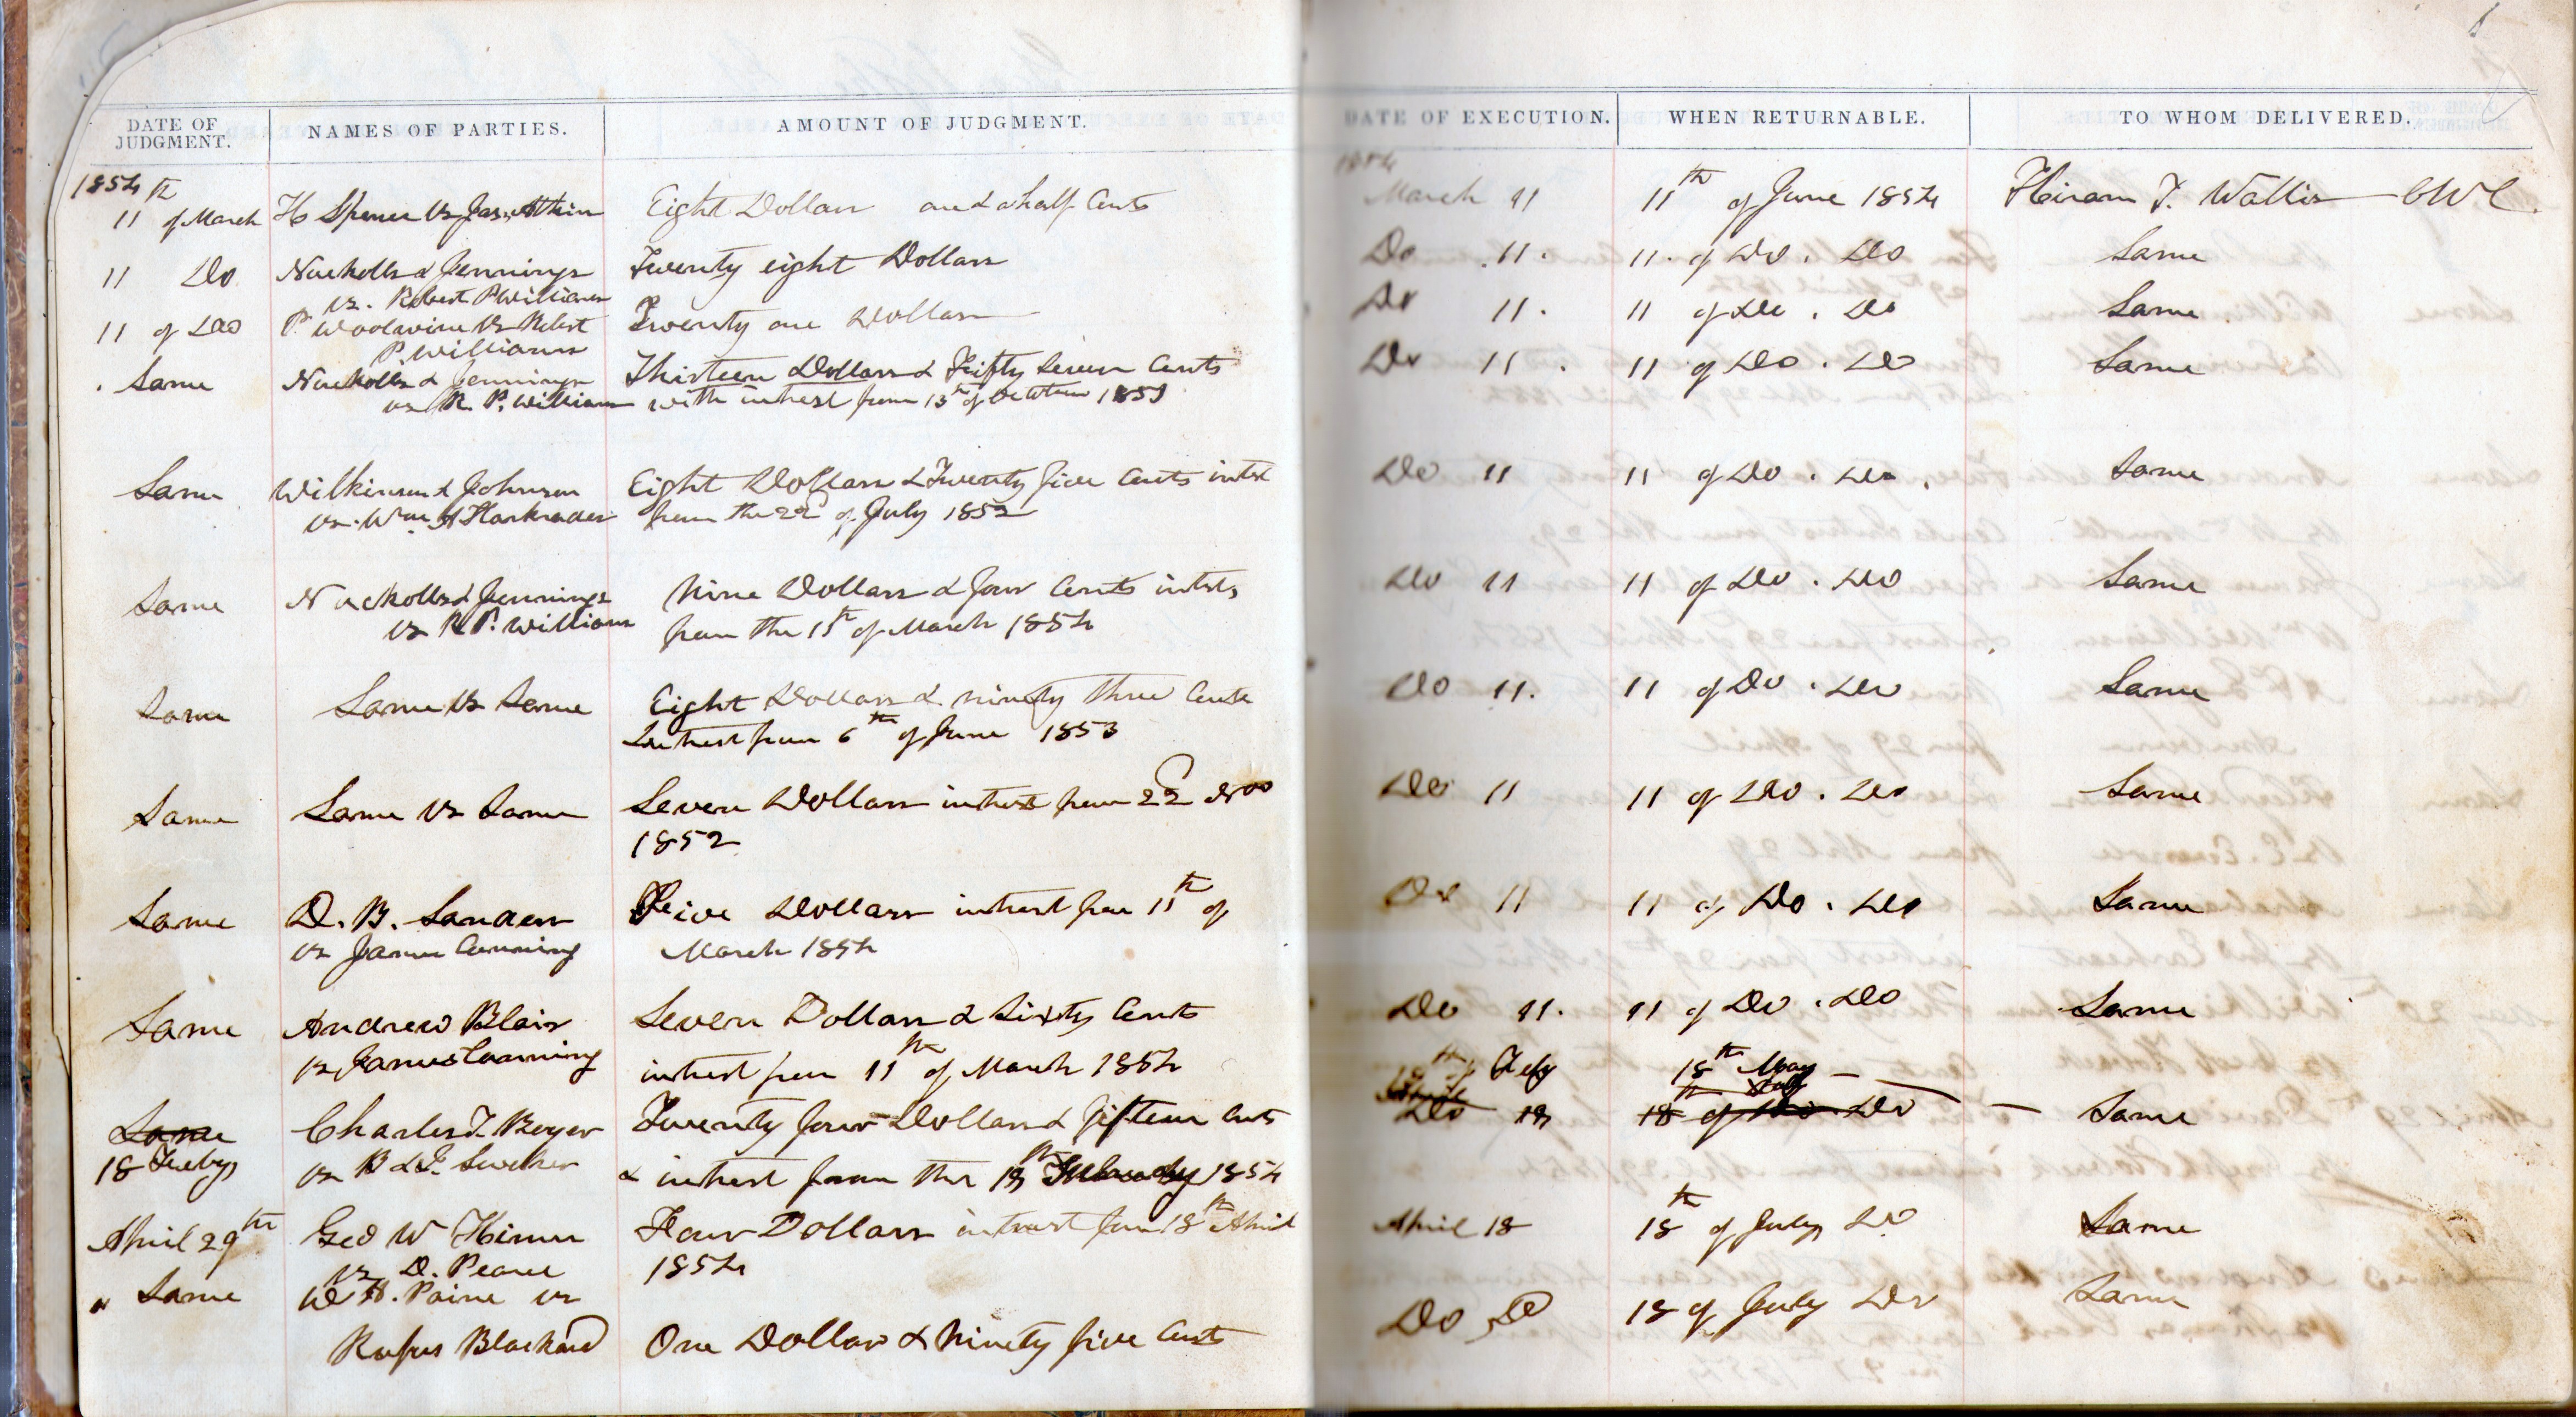 DATE OF JUDGMENT. NAMES OF PARTIES. AMOUNT OF JUDGMENT. DATE OF EXECUTION. WHEN RETURNABLE. TO WHOM DELIVERED.
1854 1854
11 of March H Spencer vs Jas. Atkin Eight Dollars and a half Cents March 11 11th of June 1854 Hiram F. Wallis
11 Do Nuckolls & Jennings Twenty eight Dollars Do 11. 11. of Do. Do Same
vs. Robert P Williams
11 of Do P. Woolwine vs Robert Twenty one Dollars Do 11. 11 of Do. Do Same
P. Williams
Same Nuckolls & Jennings Thirteen Dollars & Fifty Seven Cents Do 11. 11 of Do. Do Same
vs R. P. Williams with intrest from 13th of October 1853
Same Wilkinson & Johnson Eight Dollars & Twenty five Cents intst Do 11 11 of Do. Do. Same
vs. Wm. A Harkrader from the 22d of July 1852
Same Nuckolls & Jennings Nine Dollars & four Cents intrs Do 11 11 of Do. Do Same
vs R P. Williams from the 11th of March 1854
Same Same vs Same Eight Dollars & ninety three Cents Do 11. 11 of Do. Do Same
Intrest from 6th of June 1853
Same Same vs Same Seven Dollars intrest from 22 Nov Do 11 11 of Do. Do Same
1852
Same D. B. Sanders Five Dollars intrest from 11th of Do 11 11 of Do. Do Same
vs James Canning March 1854
Same Andrew Blair Seven Dollars & Sixty Cents Do 11. 11 of Do. Do Same
vs James Canning intrest from 11th of March 1854
18th of Feby 18th May
Same Charles T. Boyer Twenty four Dollars & fifteen Cents Do 18 18th of Do Do Same
18 Fueby vs B & J. & intrest from the 18th Febuady 1854
April 29th Geo W Four Dollars intrest from 18th April April 18 18th of July Do Same
vs D. Pearce 1854
" Same W H. Paine vs Do Do 18 of July Do Same
Rufus Blackard One Dollar & Ninety five Cents